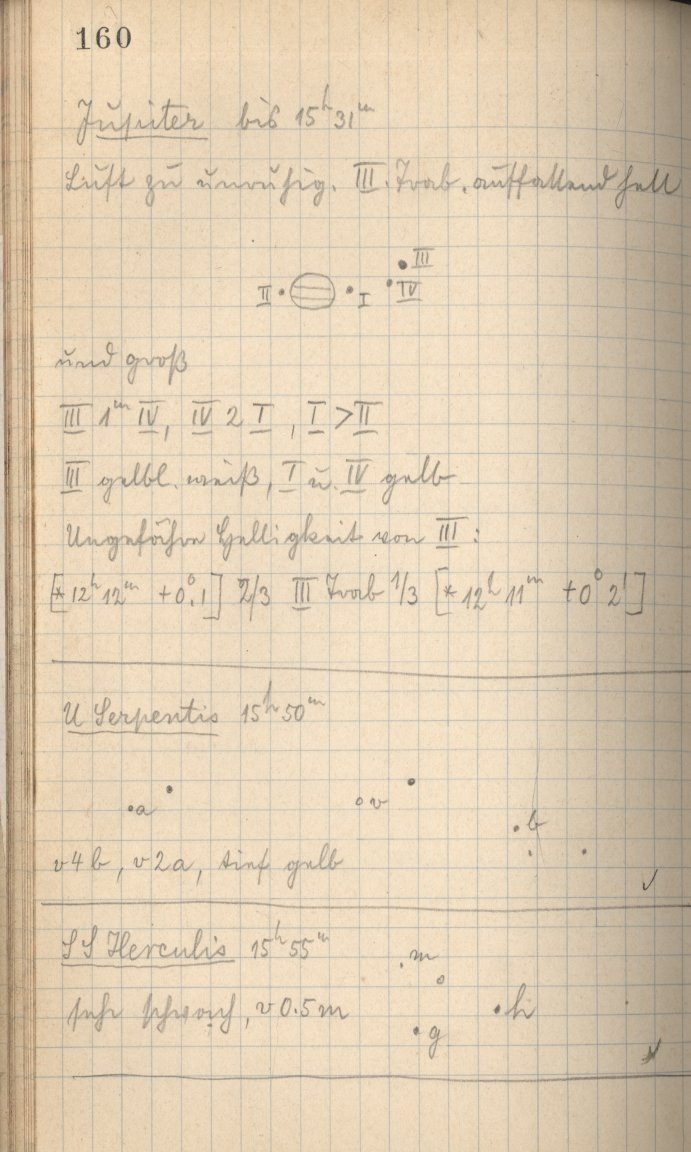 160
Jupiter bis 15h 31m
Luft zu unruhig. III. Trab. auffallend hell
III
II I IV
und groß
III 1m IV, IV 2 I, I > II
III gelbl. weiß, I u. IV gelb
Ungefähre Helligkeit von III:
[* 12h 12m +0°.1] 2/3 III Trab 1/3 [* 12h 11m +0° 2']
U Serpentis 15h 50m
a v
b
v 4 b, v 2 a, tief gelb
✓
SS Herculis 15h 55m
m
sehr schwach, v 0.5 m
h
g
✓